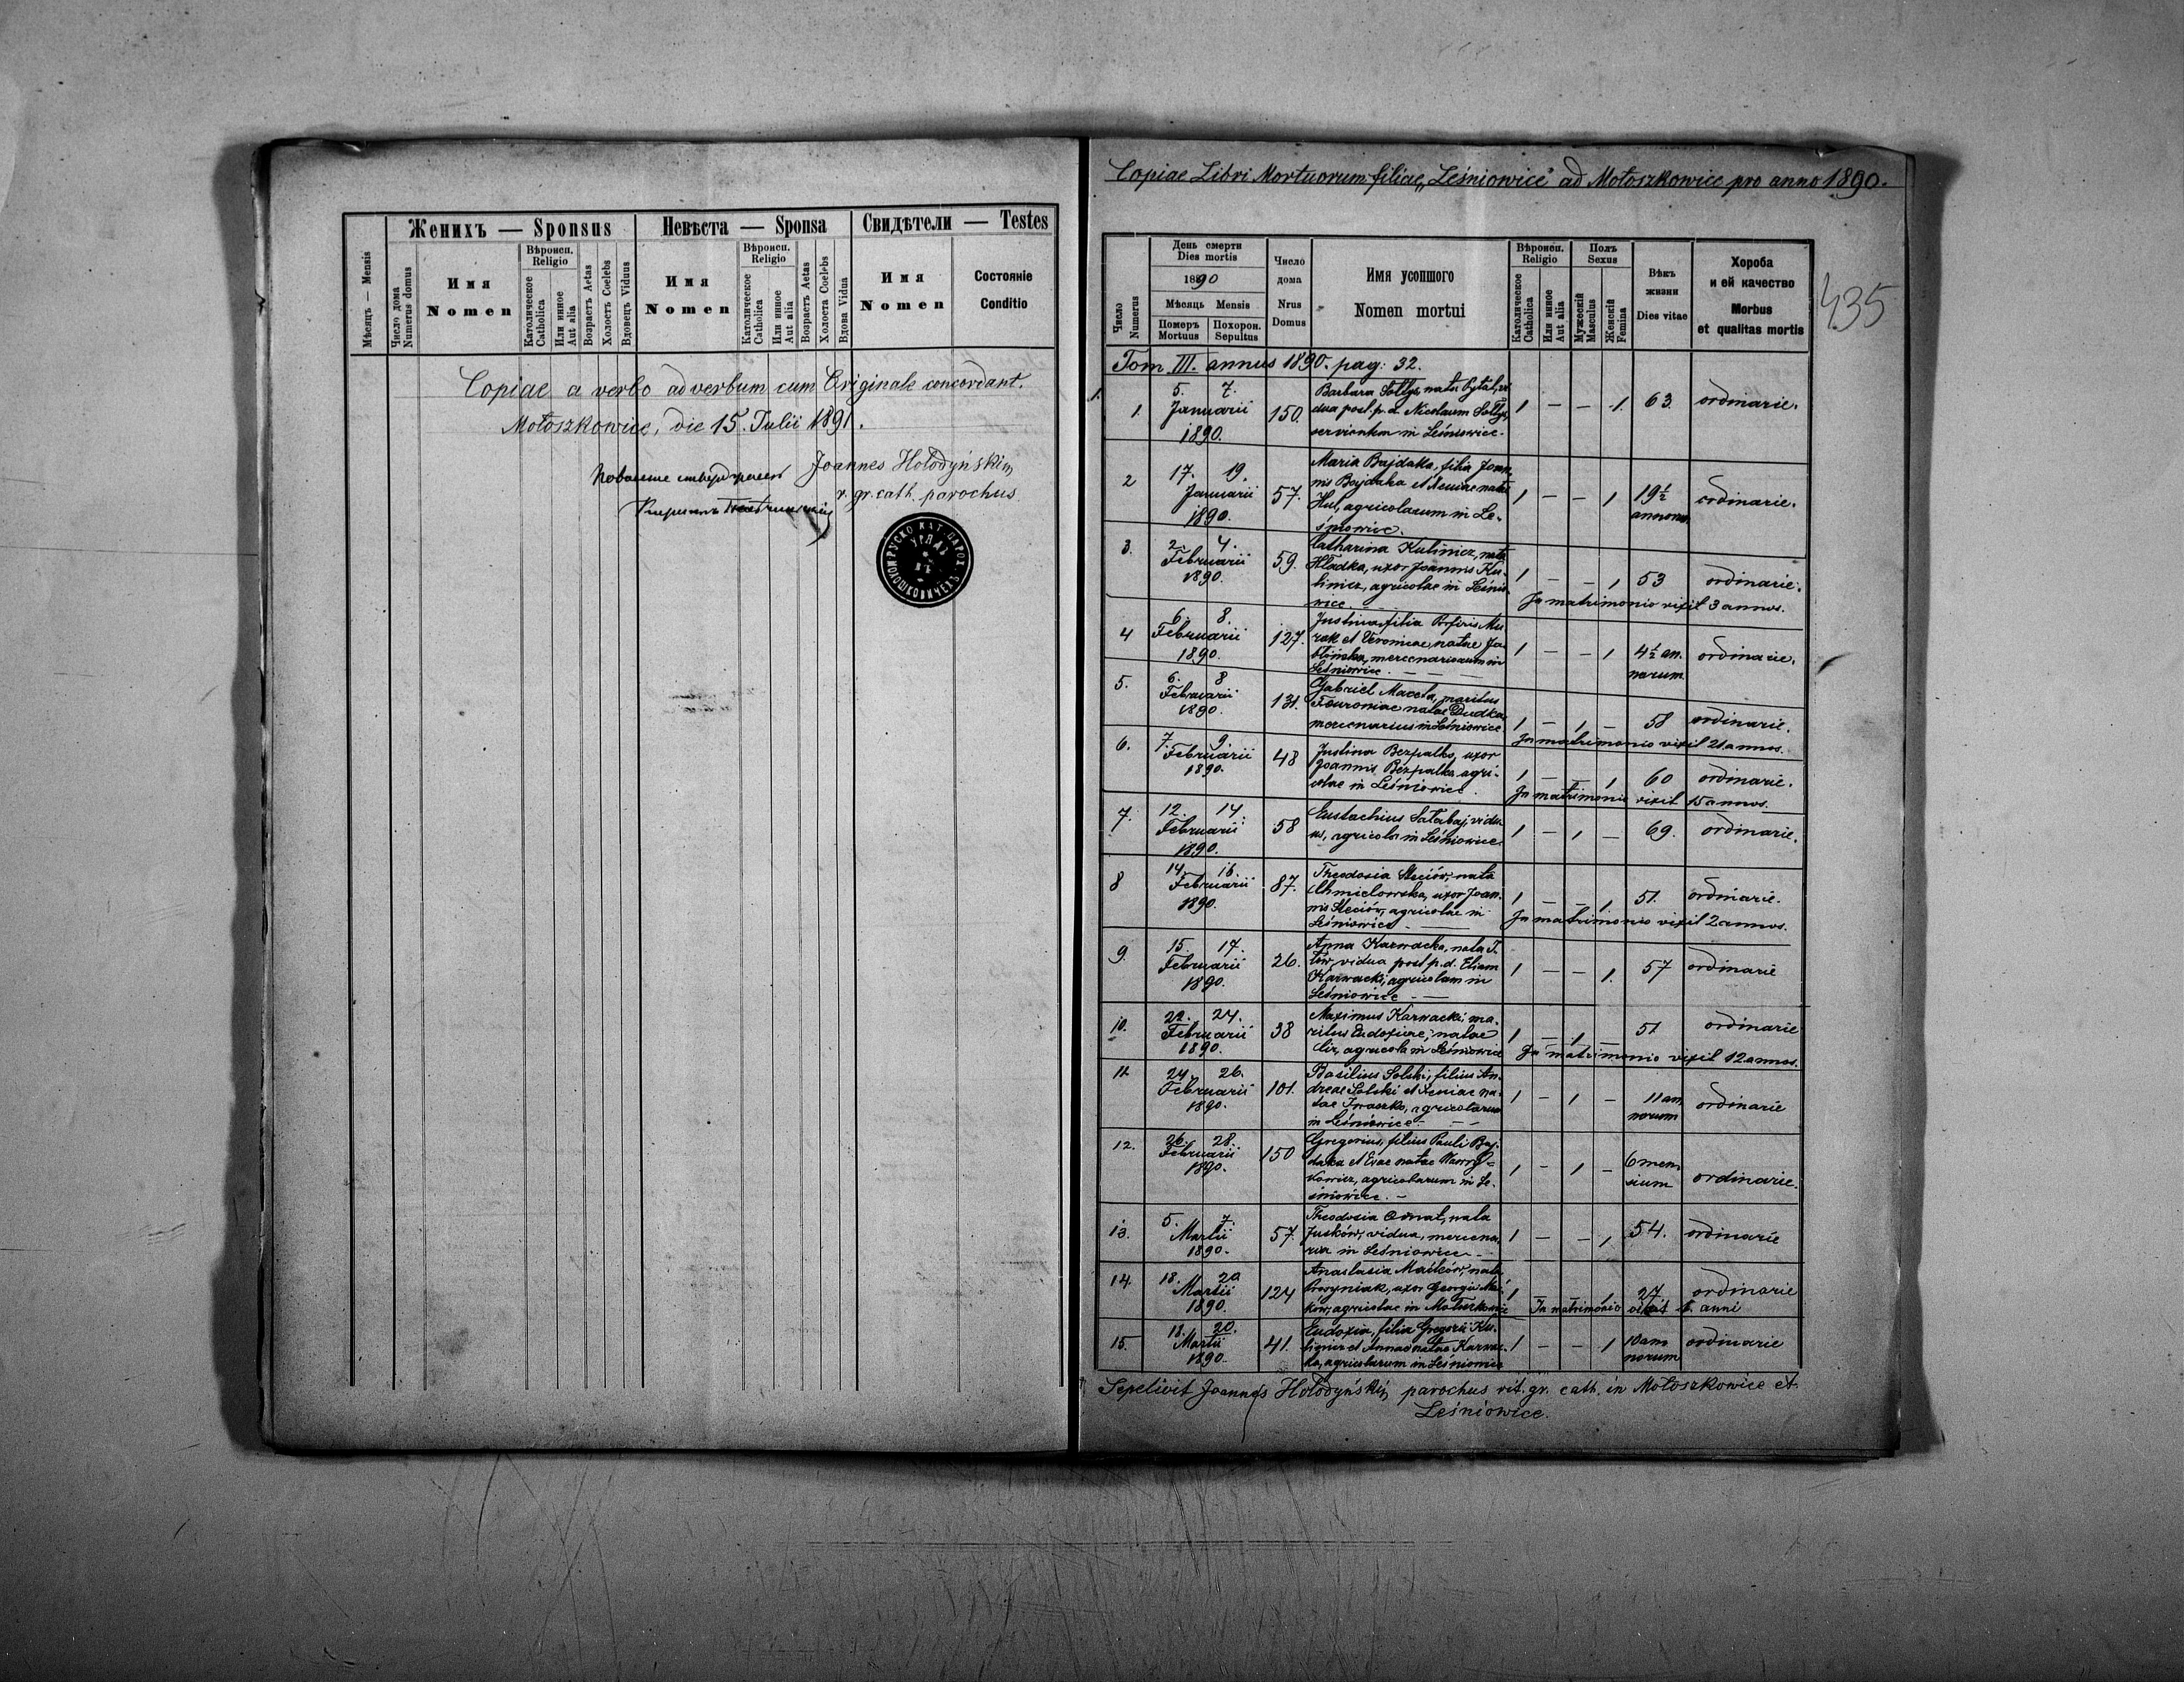 Женихъ — Sponsus
Невѣста — Sponsa
Свидѣтели — Testes
Мѣсяцъ — Mensis
Число дома
Numerus domus
Имя
Nomen
Вѣроисп.
Religio
Католическое
Catholica
Или инное
Aut alia
Возрастъ Aetas
Холостъ Coelebs
Вдовецъ Viduus
Имя
Nomen
Вѣроисп.
Religio
Католическое
Catholica
Или инное
Aut alia
Возрастъ Aetas
Холоста Coelebs
Вдова Vidua
Имя
Nomen
Состояніе
Conditio
Copiae a verbo ad verbum cum Originale concordant.
Mołoszkowice, die 15. Julii 1891.
Joannes Hołodyńskij
r. gr. cath. parochus
Copiae Libri Mortuorum filiae „Leśniowice" ad Mołoszkowice pro anno 1890.
435
Число
Numerus
День смерти
Dies mortis
1890
Мѣсяць Mensis
Померъ
Mortuus
Похорон.
Sepultus
Число
дома
Nrus
Domus
Имя усопшого
Nomen mortui
Вѣроисп.
Religio
Католическое
Catholica
Или инное
Aut alia
Полъ
Sexus
Мужескій
Masculus
Женскій
Femina
Вѣкъ
жизни
Dies vitae
Хороба
и ей качество
Morbus
et qualitas mortis
Tom III. annus 1890. pag: 32.
1. 5. 7. Januarii 1890. 150. 1 — — 1. 63 ordinarie.
Barbara Sołtys, nata Pytal, vi
dua post p. d. Nicolaum Sołtys,
servientem in Leśniowice.
2 17. 19. Januarii 1890. 57. 1 — — 1 19½ annorum ordinarie.
Maria Bajdaka, filia Joan
nis Bajdaka et Xeniae natae
Hul, agricolarum in Le-
śniowice.
3. 2. 4. Februarii 1890. 59. 1 — — 1 53 ordinarie.
Catharina Kulinicz, nata
Hładka, uxor Joannis Ku-
linicz, agricolae in Leśnio
wice.
In matrimonio vixit 3 annos.
4 6. 8. Februarii 1890. 127. 1 — — 1 4½ an. norum ordinarie.
Justina, filia Porfiris Mu
rak et Veronicae natae Ja
błońska, mercenariorum in
Leśniowice. — — —
5. 6. 8 Februarii 1890. 131. 1 — 1 — 58 ordinarie.
Gabriel Maceła, maritus
Fevroniae natae Dudka
mercenarius in Leśniowice
In matrimonio vixit 21 annos.
6. 7. 9. Februarii 1890. 48 1 — — 1 60 ordinarie.
Justina Bezpalko, uxor
Joannis Bezpalko, agri-
colae in Leśniowice.
In matrimonio vixit 15 annos.
7. 12. 14. Februarii 1890. 58 1 — 1 — 69. ordinarie.
Eustachius Sałabaj, vidu
us, agricola in Leśniowice.
8 14. 16. Februarii 1890. 87. 1 — — 1. 51. ordinarie.
Theodosia Steciów, nata
Chmielowska, uxor Joan-
nis Steciów, agricolae in
Leśniowice. —
In matrimonio vixit 2 annos.
9. 15. 17. Februarii 1890. 26. 1 — — 1. 57 ordinarie
Anna Karwacka, nata T.
tów, vidua post p. d. Eliam
Karwacki, agricolam in
Leśniowice. —
10. 22. 24. Februarii 1890. 38 1 — 1 — 51 ordinarie
Maximus Karwacki, ma-
ritus Eudoxiae, natae
Cir, agricola in Leśniowice
In matrimonio vixit 12 annos.
11 24. 26. Februarii 1890. 101. 1 — 1 — 11 an norum ordinarie
Basilius Solski, filius An-
dreae Solski et Xeniae na-
tae Iwaszko, agricolarum
in Leśniowice — —
12. 26. 28. Februarii 1890. 150 1 — 1 — 6 men sium ordinarie.
Gregorius, filius Pauli Baj-
daka et Evae natae Wawry-
kowicz, agricolarum in Le-
śniowice. —
13. 5. 7. Martii 1890. 57. 1 — — 1. 54. ordinarie
Theodosia Ornat, nata
Juśków, vidua, mercena
ria in Leśniowice —
14. 18. 20 Martii 1890. 124 1 — — 1. 27 ordinarie
Anastasia Maśków, nata
uxor Georgii Maś
ków, agricolae in Mołoszkowice
In matrimonio vixit anni
15. 18. 20. Martii 1890. 41. 1 — — 1 10 an norum ordinarie
Eudoxia, filia Gregorii Ku-
linicz et Annae natae Karwac
ka, agricolarum in Leśniowice
Sepelivit Joannes Hołodyńskij, parochus rit. gr. cath. in Mołoszkowice et
Leśniowice.